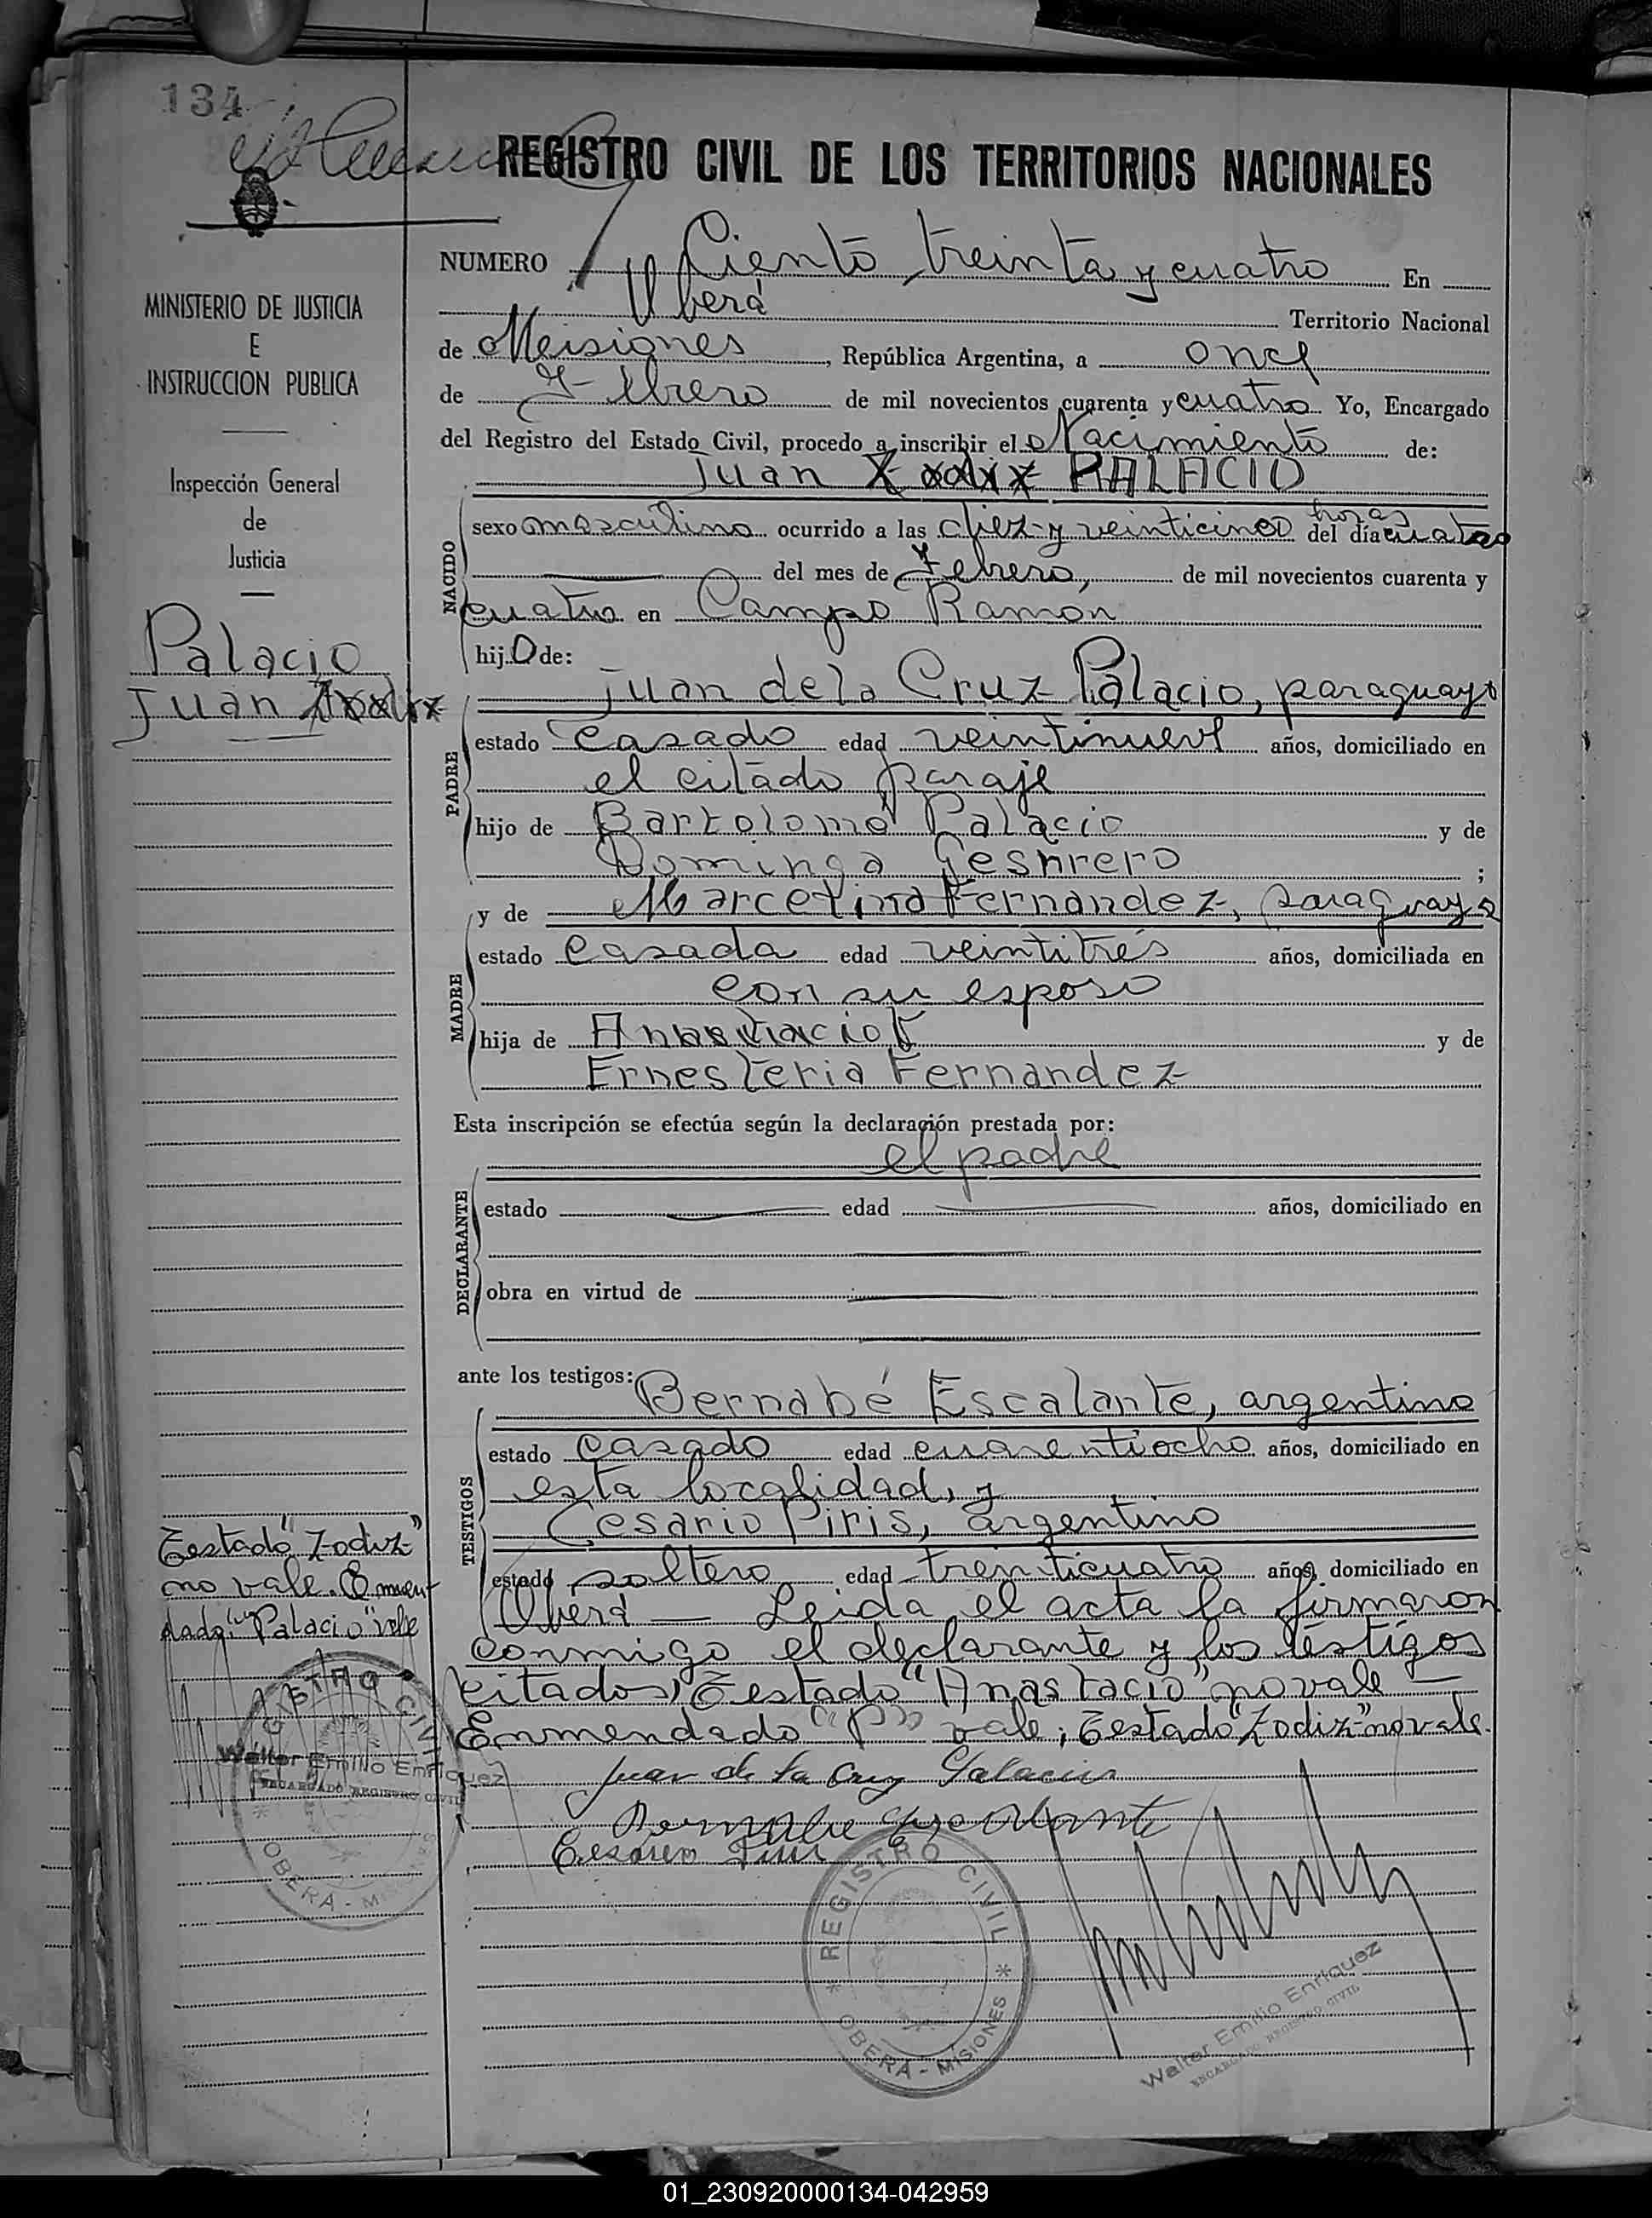 134
REGISTRO CIVIL DE LOS TERRITORIOS NACIONALES
MINISTERIO DE JUSTICIA
E
INSTRUCCION PUBLICA
Inspección General
de
Justicia
Palacio
Juan
NUMERO Ciento treinta y cuatro En
Oberá Territorio Nacional
de Misiones, República Argentina, a once
de Febrero de mil novecientos cuarenta y cuatro Yo, Encargado
del Registro del Estado Civil, procedo a inscribir el Nacimiento de:
Juan PALACIO
NACIDO
sexo masculino ocurrido a las diez y veinticinco horas del día cuatro
del mes de Febrero, de mil novecientos cuarenta y
cuatro en Campo Ramón
hijo de:
Juan de la Cruz Palacio, paraguayo
PADRE
estado casado edad veintinueve años, domiciliado en
el citado paraje
hijo de Bartolomé Palacio y de
Dominga ;
y de Marcelina Fernandez, paraguaya
MADRE
estado casada edad veintitrés años, domiciliada en
con su esposo
hija de y de
Ernesteria Fernandez
Esta inscripción se efectúa según la declaración prestada por:
el padre
DECLARANTE
estado edad años, domiciliado en
obra en virtud de
ante los testigos:
Bernabé Escalante, argentino
TESTIGOS
estado casado edad cuarentiocho años, domiciliado en
esta localidad, y
Cesario Piris, argentino
estado soltero edad trenticuatro años, domiciliado en
Oberá — Leida el acta la firmaron
conmigo el declarante y los testigos
citados, Testado "Anastacio" no vale —
Enmendado "P" vale; Testado "Zodiz" no vale.
Juan de la Cruz Palacio
Bernabe Escalante
Cesareo Piris
Testado "Zodiz"
no vale. Enmen
dado: "Palacio" vale
REGISTRO CIVIL
OBERA - MISIONES
Walter Emilio Enriquez
ENCARGADO REGISTRO CIVIL
REGISTRO CIVIL
OBERA - MISIONES
Walter Emilio Enriquez
ENCARGADO REGISTRO CIVIL
01_230920000134-042959